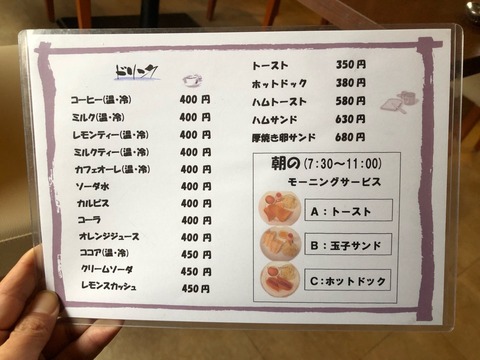 ドリンク
コーヒー(温・冷) 400円
ミルク(温・冷) 400円
レモンティー(温・冷) 400円
ミルクティー(温・冷) 400円
カフェオーレ(温・冷) 400円
ソーダ水 400円
カルピス 400円
コーラ 400円
オレンジジュース 400円
ココア(温・冷) 450円
クリームソーダ 450円
レモンスカッシュ 450円
トースト 350円
ホットドック 380円
ハムトースト 580円
ハムサンド 630円
厚焼き卵サンド 680円
朝の(7:30～11:00)
モーニングサービス
A:トースト
B:玉子サンド
C:ホットドック